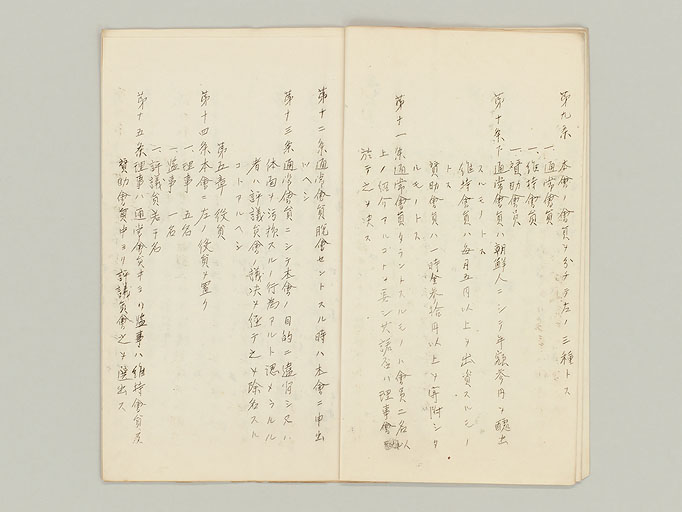 第九条 本會ノ會員ヲ分チテ左ノ三種トス
一、通常會員
一、維持會員
一、賛助會員
第十条 通常會員ハ朝鮮人ニシテ年額参円ヲ醵出
スルモノトス
維持會員ハ毎月五円以上ヲ出資スルモノ
トス
賛助會員ハ一時金参拾円以上ヲ寄附シタ
ルモノトス
第十一条 通常會員タラントスルモノハ會員二名以
上ノ紹介アルコトヲ要シ其諾否ハ理事會
於テ之ヲ決ス
第十二条 通常會員脱會セントスル時ハ本會ニ申出
ツヘシ
第十三条 通常會員ニシテ本會ノ目的ニ違背シ又ハ
体面ヲ汚損スルノ行為アルト認メラルル
者ハ評議員會ノ議決ヲ経テ之ヲ除名スル
コトアルヘシ
第五章 役員
第十四条 本會ニ左ノ役員ヲ置ク
一、理事 五名
一、監事 一名
一、評議員若干名
第十五条 理事ハ通常會員中ヨリ監事ハ維持會員及
賛助會員中ヨリ評議員會之ヲ選出ス